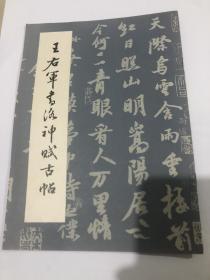 王右軍書洛神賦古帖
天際烏雲含雨重樓前
紅日照山明嵩陽居士
今何在青眼看人万里情